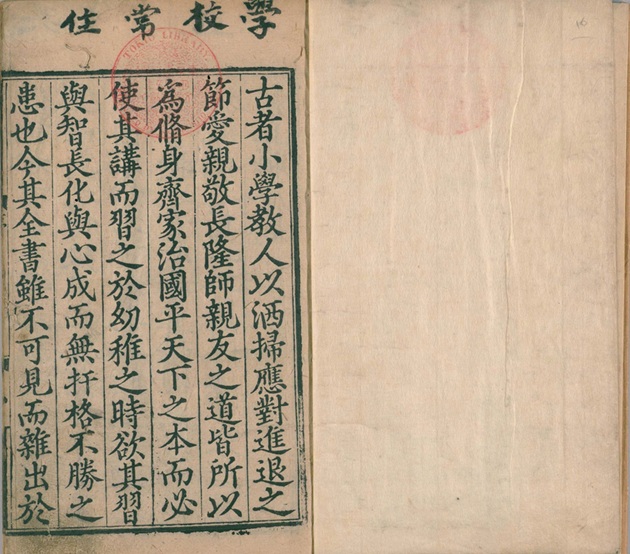 學校常住
古者小學教人以洒掃應對進退之
節愛親敬長隆師親友之道皆所以
爲脩身齊家治國平天下之本而必
使其講而習之於幼稚之時欲其習
與智長化與心成而無扞格不勝之
患也今其全書雖不可見而雜出於
TOKYO LIBRARY
16